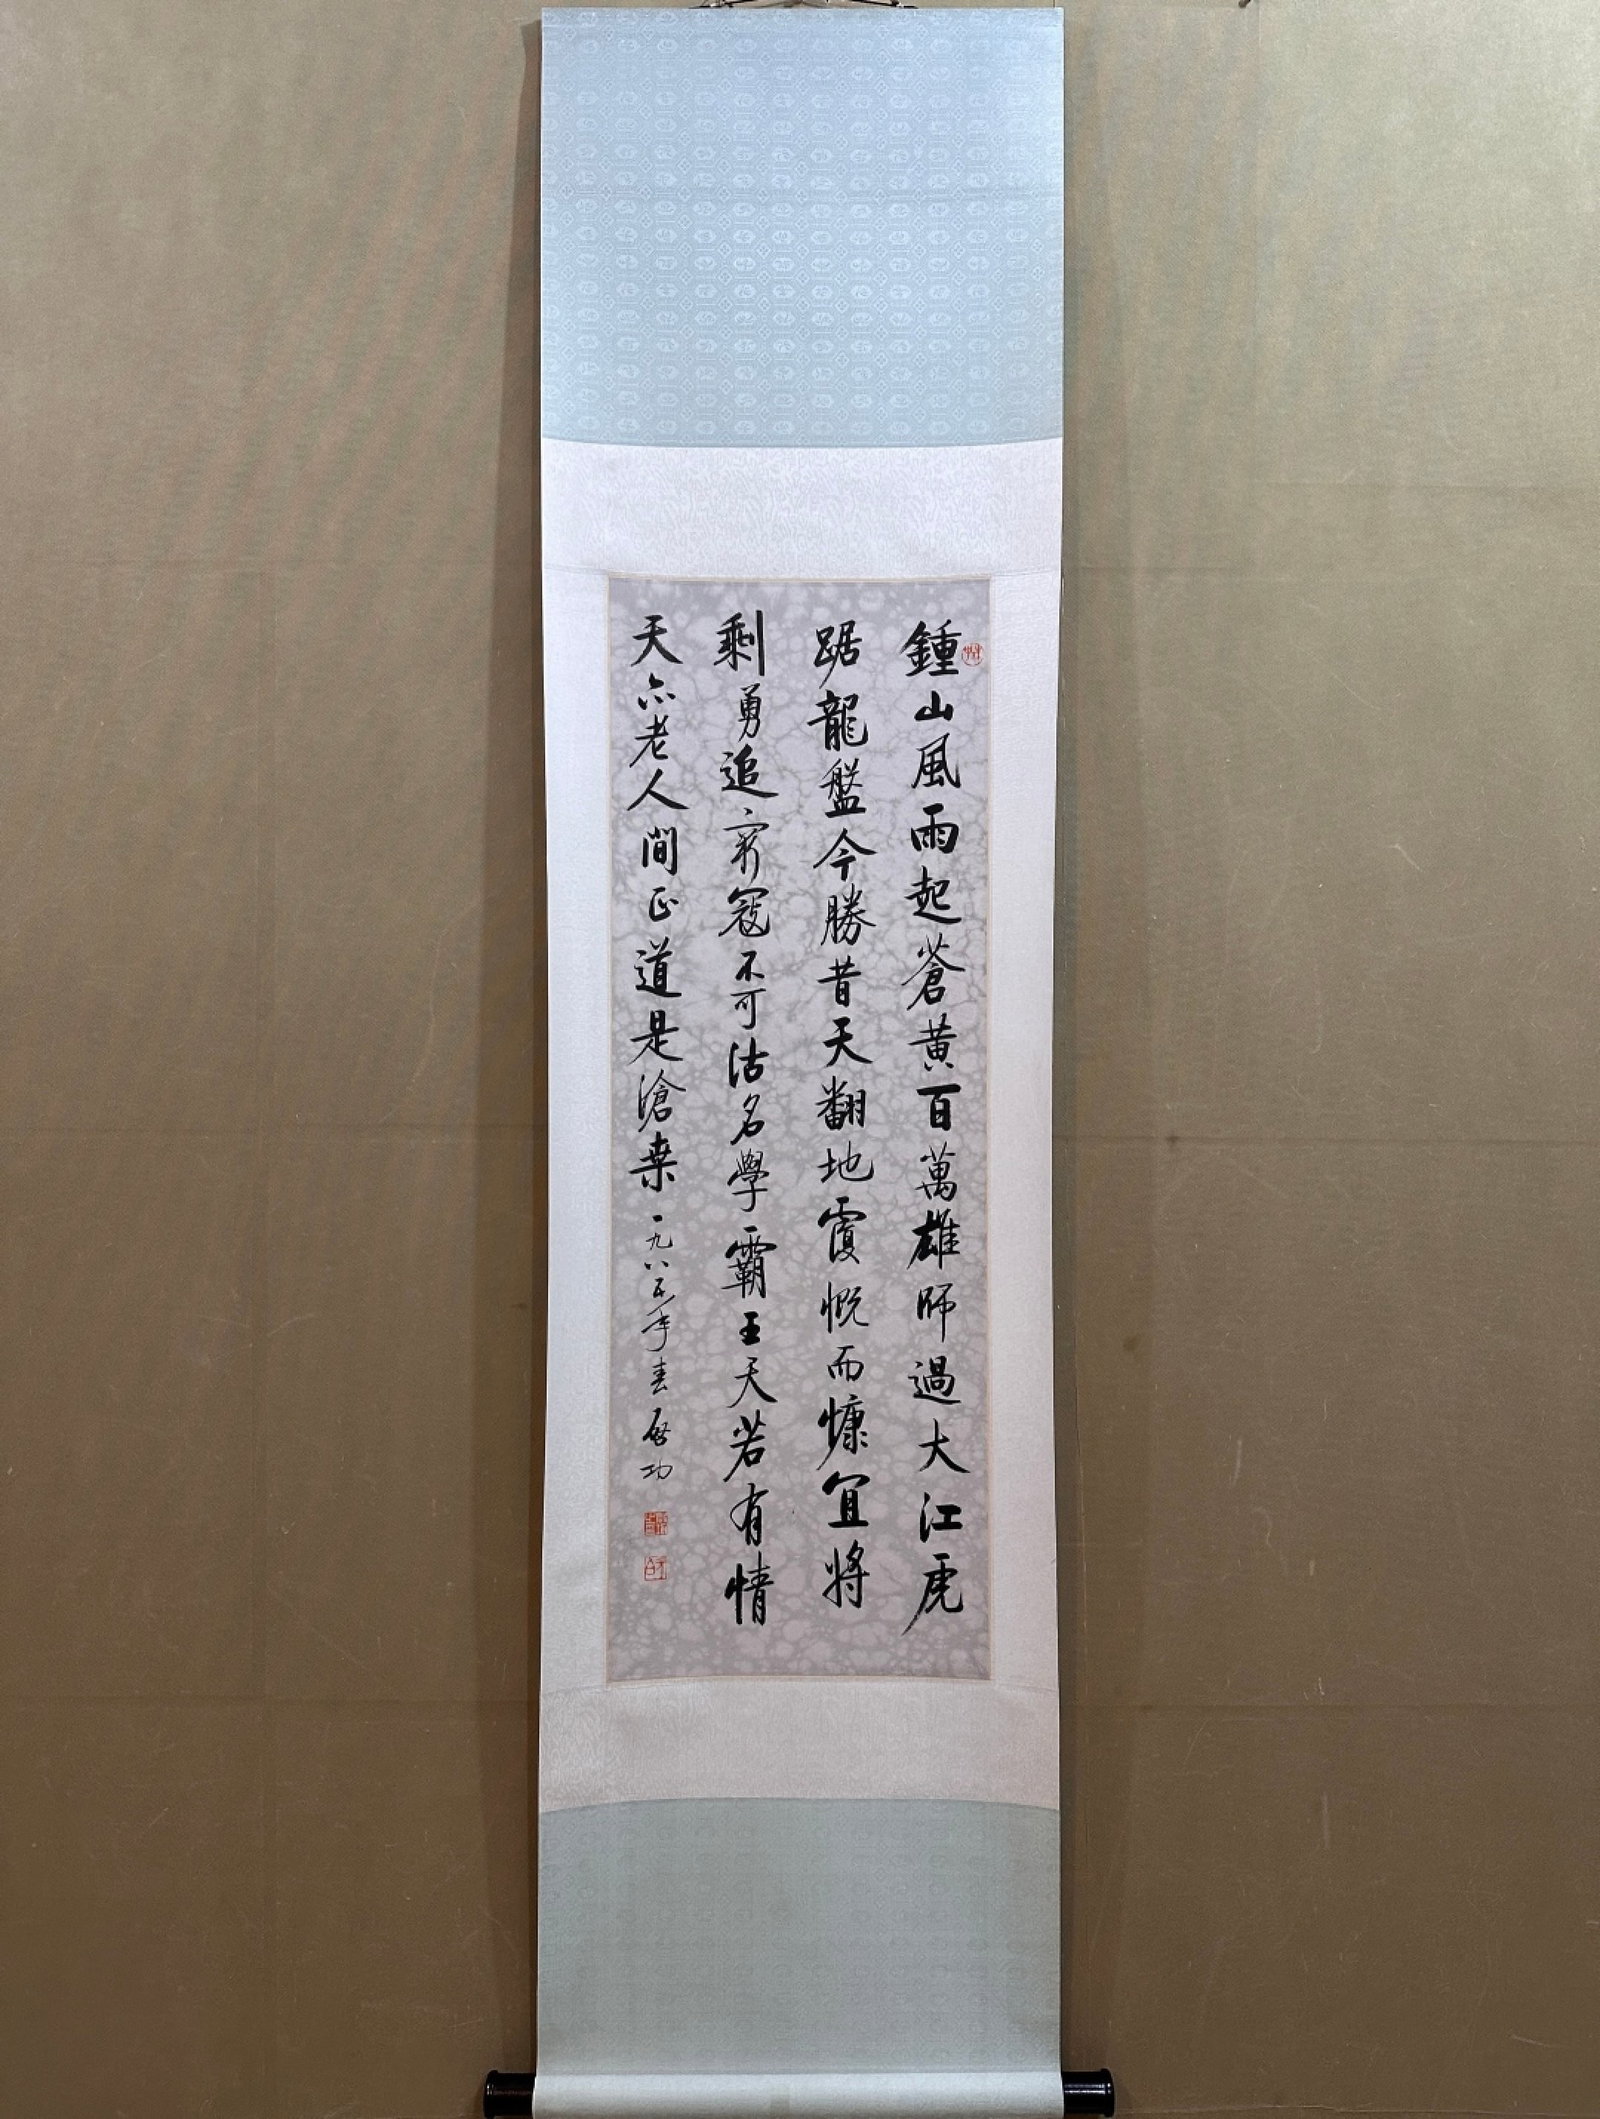 鍾山風雨起蒼黃百萬雄師過大江虎
踞龍盤今勝昔天翻地覆慨而慷宜將
剩勇追窮寇不可沽名學霸王天若有情
天亦老人間正道是滄桒一九八五年春啟功